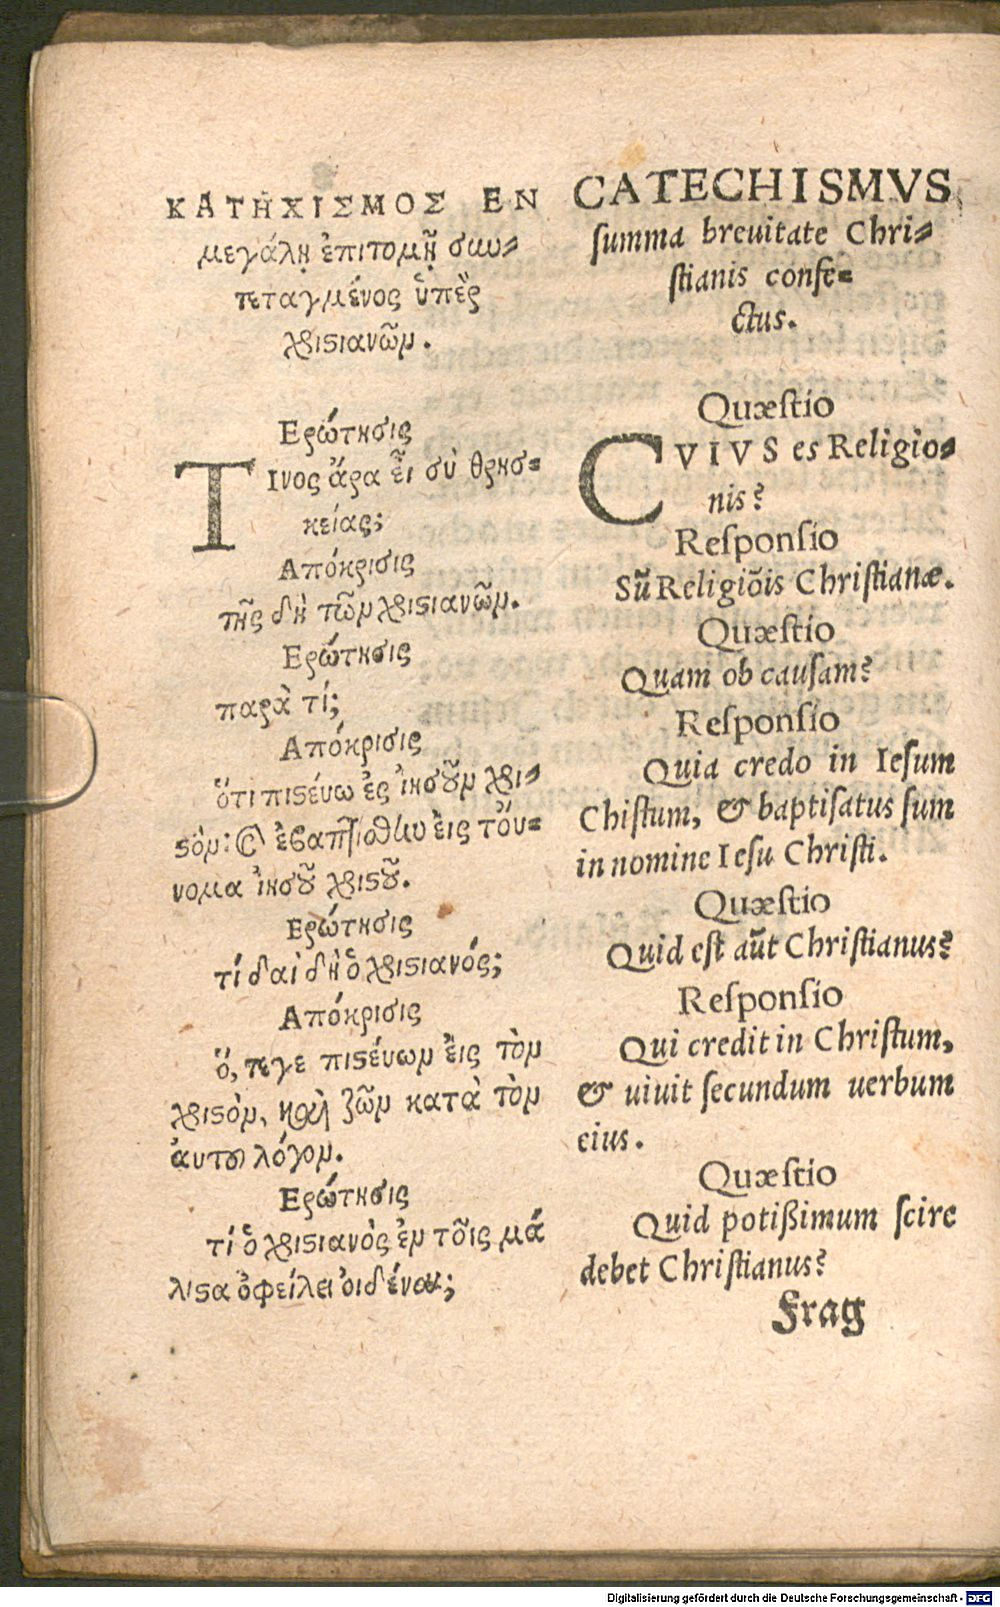 ΚΑΤΗΧΙΣΜΟΣ ΕΝ
μεγάλῃ ἐπιτομῇ συν-
τεταγμένος ὑπὲρ
χριστιανῶν.
Ερώτησις
Τίνος ἄρα εἶ σὺ θρησ-
κείας;
Απόκρισις
τῆς δὴ τῶν χριστιανῶν.
Ερώτησις
παρὰ τί;
Απόκρισις
ὅτι πιστέυω ἐς ἰησοῦν χρι-
στὸν: καὶ ἐβαπτίσθην εἰς τοὔ-
νομα ἰησοῦ χριστοῦ.
Ερώτησις
τί δαὶ δὴ ὁ χριστιανός;
Απόκρισις
ὅ, τεγε πιστέυων εἰς τὸν
χριστὸν, καὶ ζῶν κατὰ τὸν
ἀυτου λόγον.
Ερώτησις
τί ὁ χριστιανὸς ἐν τοῖς μά
λιστα ὀφείλει οιδέναι;
CATECHISMVS
ſumma breuitate Chri-
ſtianis confe-
ctus.
Quæſtio
CVIVS es Religio-
nis?
Reſponſio
Sũ Religiõis Chriſtianæ.
Quæſtio
Quam ob cauſam?
Reſponſio
Quia credo in Ieſum
Chiſtum, & baptiſatus ſum
in nomine Ieſu Chriſti.
Quæſtio
Quid eſt aũt Chriſtianus?
Reſponſio
Qui credit in Chriſtum,
& uiuit ſecundum uerbum
eius.
Quæſtio
Quid potißimum ſcire
debet Chriſtianus?
Frag
Digitalisierung gefördert durch die Deutsche Forschungsgemeinschaft - DFG